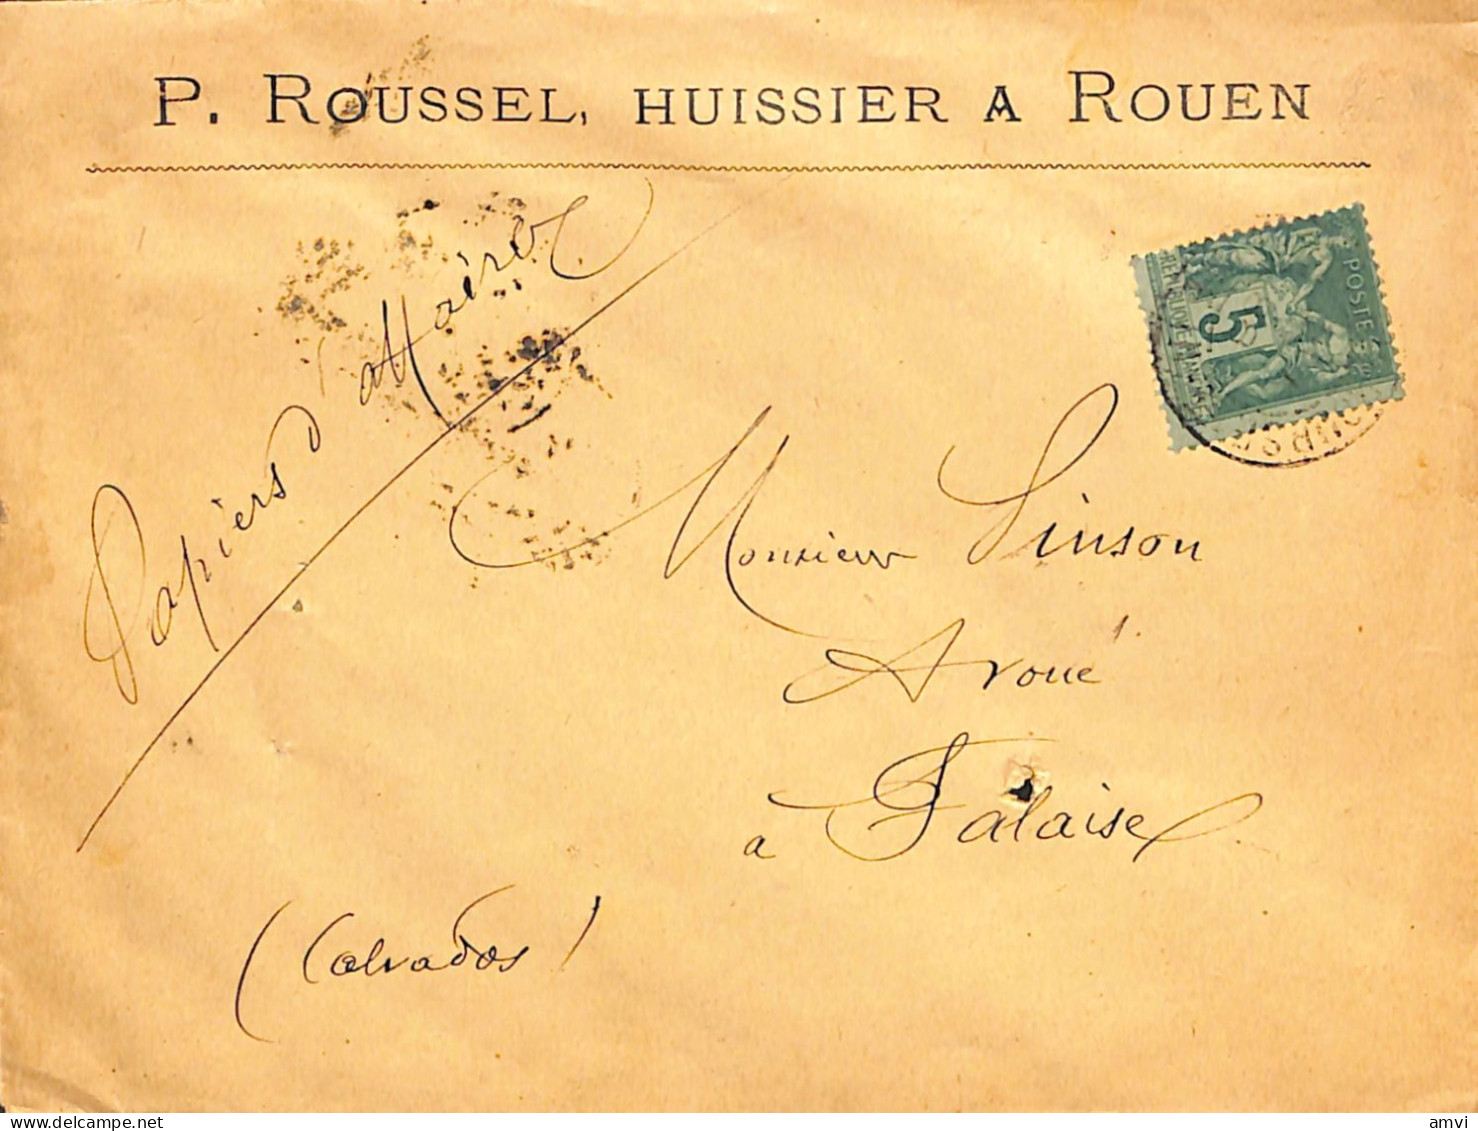 P. ROUSSEL, HUISSIER A ROUEN
Papiers d'affaires
POSTE
5
Monsieur Sinson
Avoué
a Falaise
(Calvados)
delcampe.net
amvi